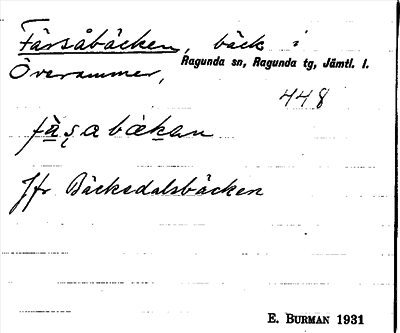 Färsåbäcken, bäck i
Överammer, Ragunda sn, Ragunda tg, Jämtl. l.
448
Jfr Bäcksdalsbäcken
E. BURMAN 1931